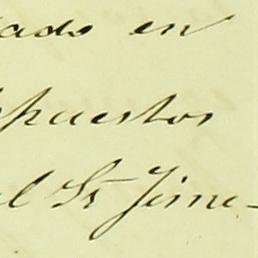 ado en
puestos
el Sr Jime-